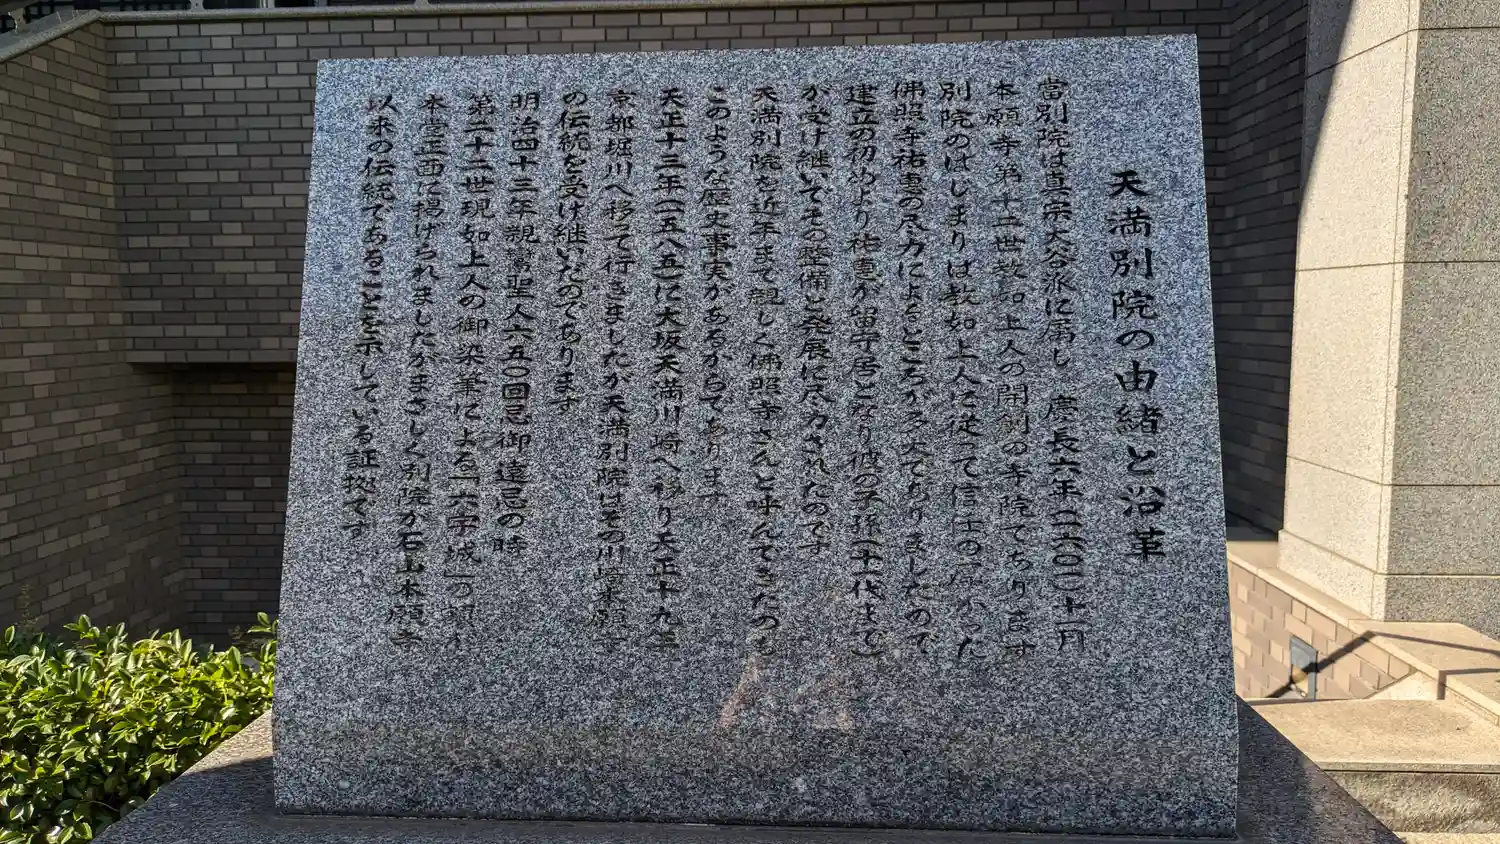 天満別院の由緒と沿革
當別院は真宗大谷派に属し 慶長六年(一六〇一)十一月
本願寺第十二世教如上人の開創の寺院であります
別院のはじまりは教如上人に従って信任の厚かった
佛照寺祐恵の尽力によるところが多大でありましたので
建立の初めより祐恵が留守居となり彼の子孫(十代まで)
が受け継いでその整備と発展に尽力されたのです
天満別院を近年まで親しく佛照寺さんと呼んできたのも
このような歴史事実があるからであります
天正十三年(一五八五)に大坂天満川崎へ移り天正十九年
京都堀川へ移って行きましたが天満別院はその川崎本願寺
の伝統を受け継いだのであります
明治四十三年親鸞聖人六五〇回忌御遠忌の時
第二十二世現如上人の御染筆による「六字城」の額が
本堂正面に掲げられましたがまさしく別院が石山本願寺
以来の伝統であることを示している証拠です